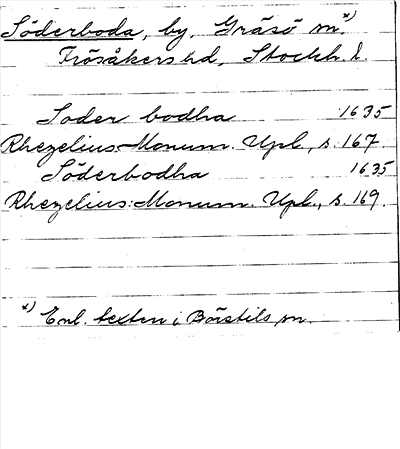 Söderboda, by, Gräsö sn. x)
Frösåkers hd, Stockh. l.
Soder bodha 1635
Rhezelius: Monum. Upl., s. 167.
Söderbodha 1635
Rhezelius: Monum. Upl., s. 169.
x) Enl. texten i Börstils sn.